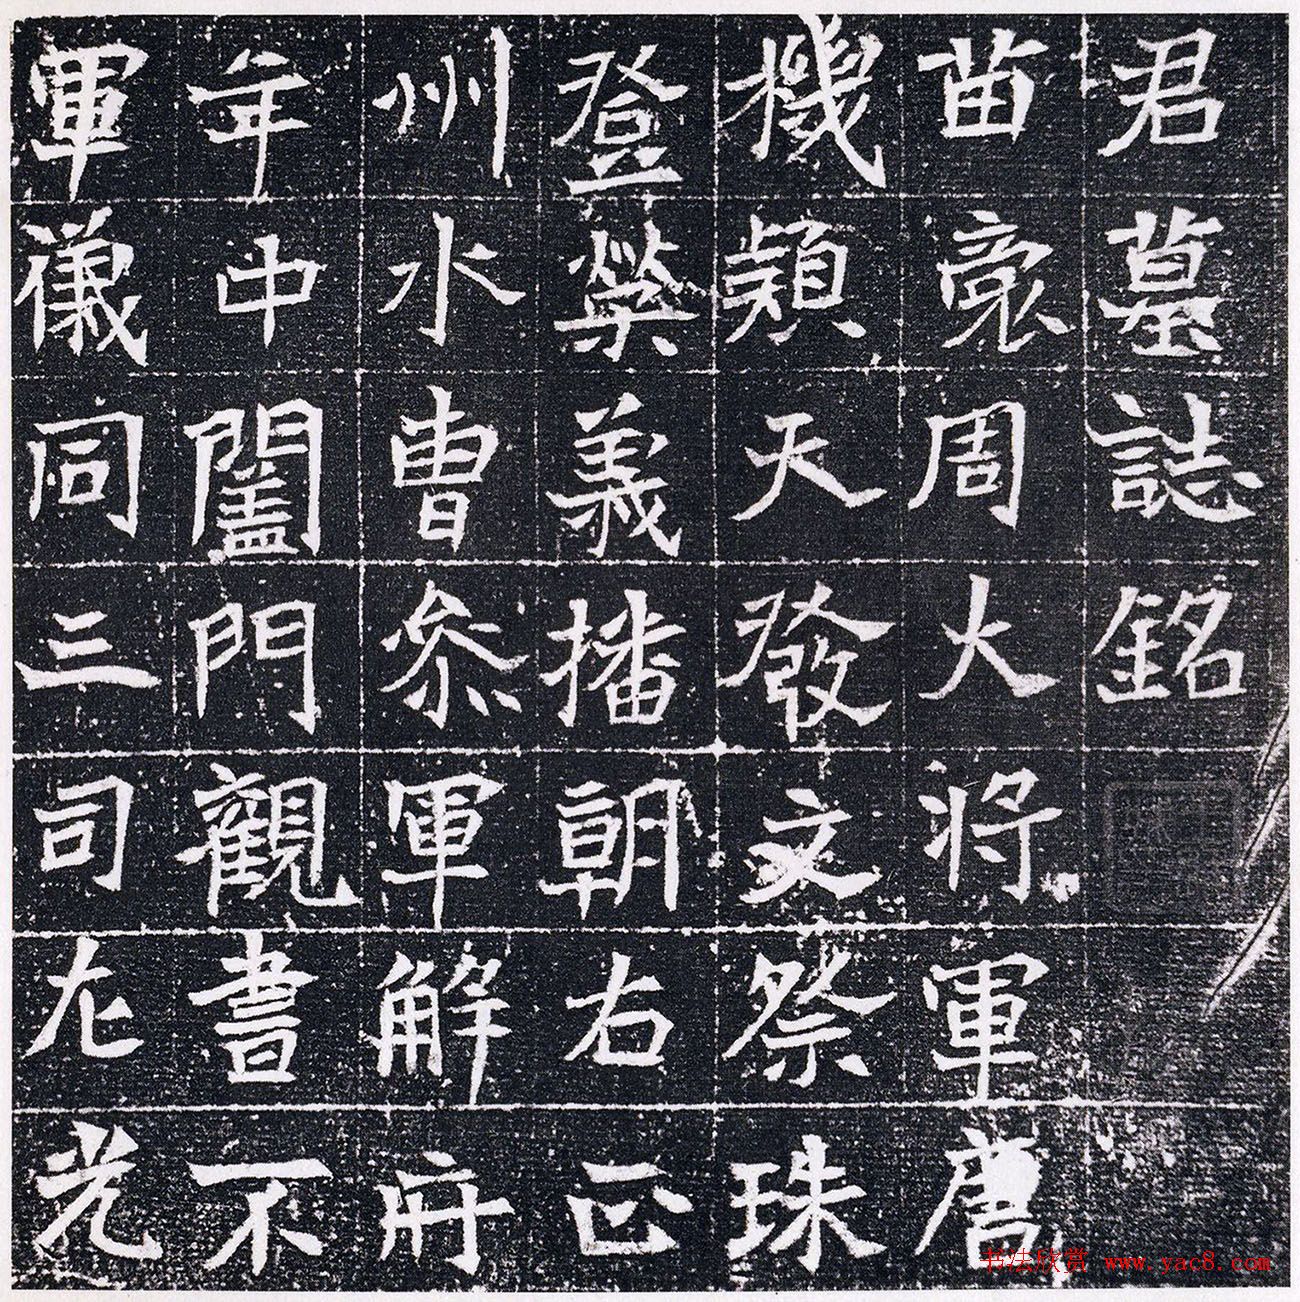 君墓誌銘
苗裔周大將軍唐
機穎天發文祭珠
登榮義播朝右正
州水曹參軍解
年中闔門觀書不
軍儀同三司左光
书法欣赏 www.yac8.com